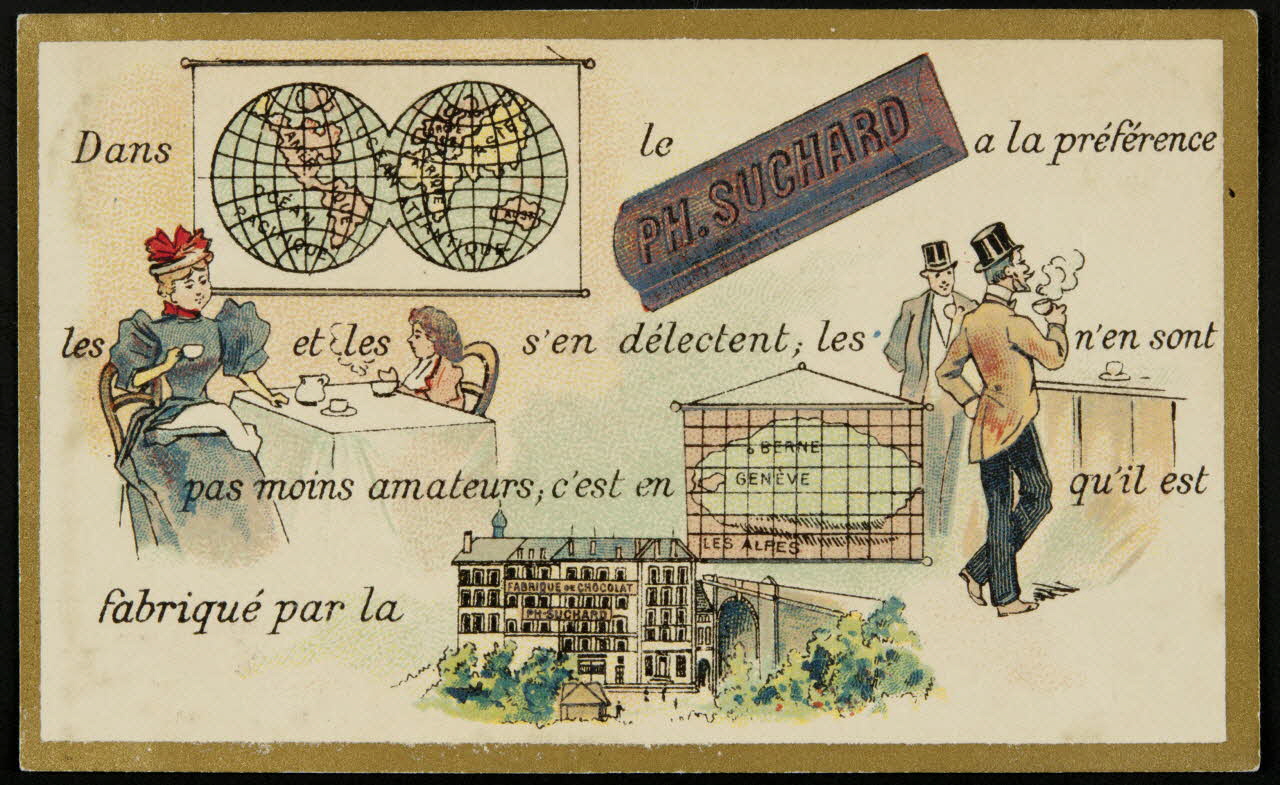 Dans le PH. SUCHARD a la préférence
AMÉRIQUE
OCÉAN PACIFIQUE
OCÉAN ATLANTIQUE
EUROPE
ASIE
AFRIQUE
AUST
les et les s'en délectent, les n'en sont
pas moins amateurs, c'est en qu'il est
BERNE
GENÈVE
LES ALPES
fabriqué par la
FABRIQUE DE CHOCOLAT
PH. SUCHARD